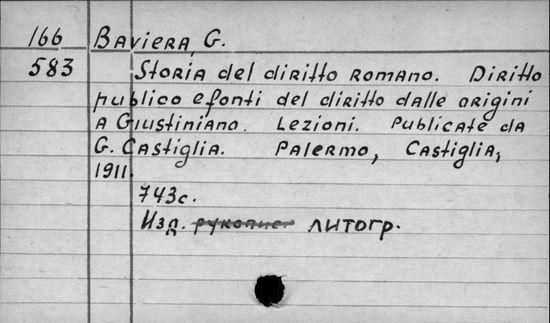 166 Baviera, G.
583 Storia del diritto romano. Diritto
publico e fonti del diritto dalle origini
a Giustiniano. Lezioni. Publicate da
G. Castiglia. Palermo, Castiglia,
1911.
743c.
Изд. рукопис. литогр.